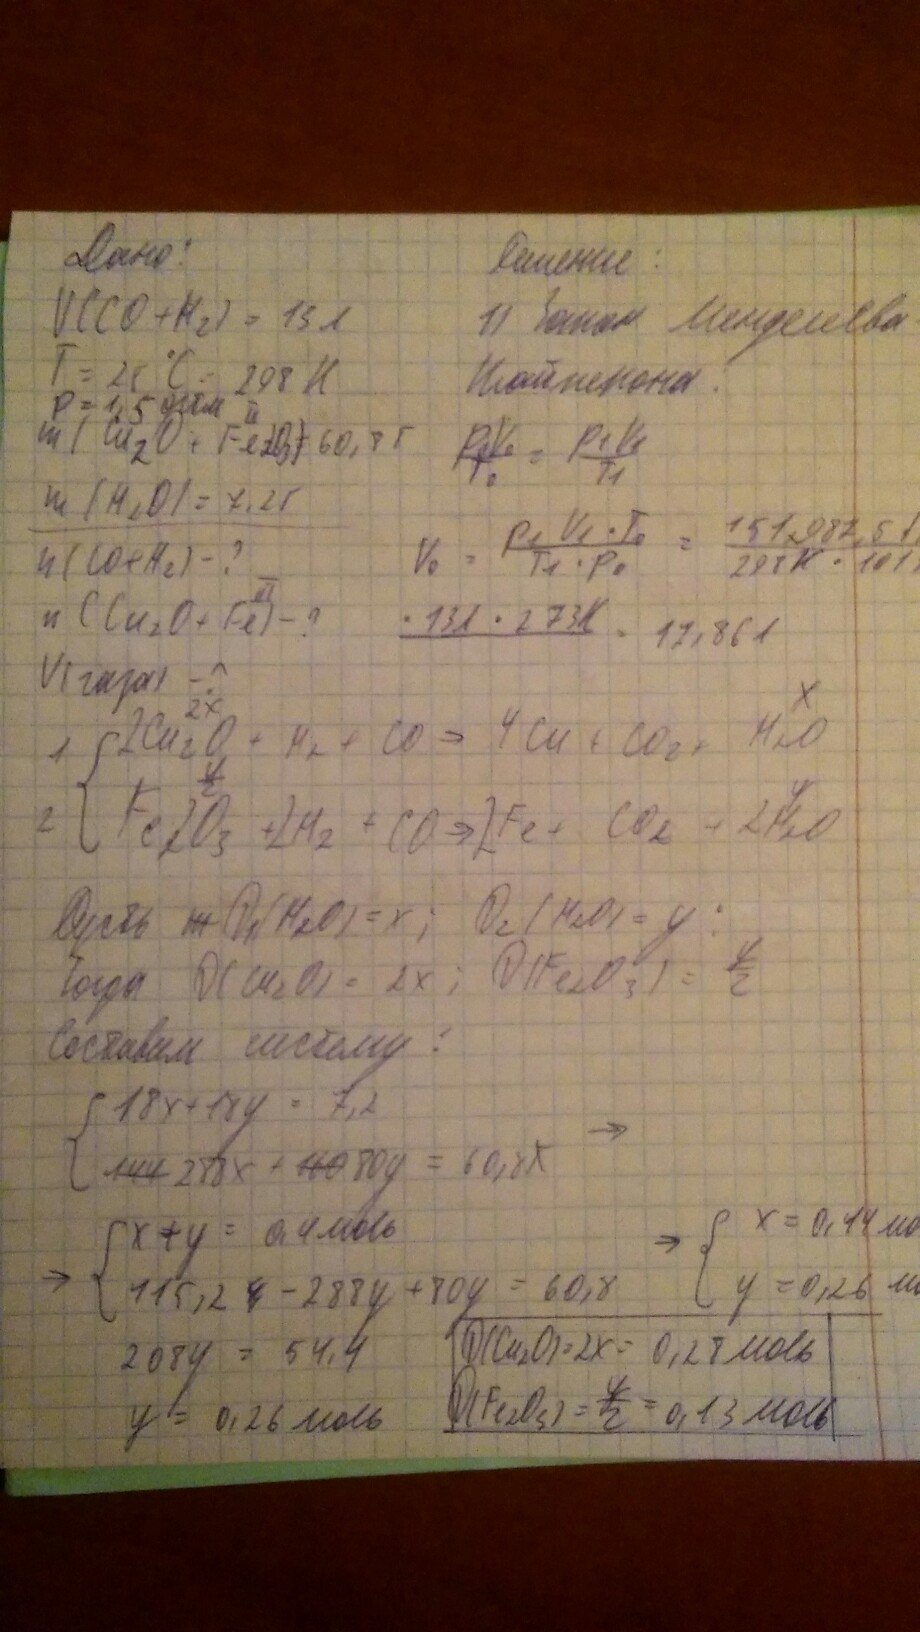 Дано:
V(CO+H2) = 13л
T = 25°C = 298 K
P = 1,5 атм
m(Cu2O + Fe2O3) = 60,8г
m(H2O) = 7,2г
n(CO+H2) - ?
n(Cu2O + Fe) - ?
V(газа) - ?
Решение:
1) Закон Менделеева
Клайперона:
P0V0/T0 = P1V1/T1
V0 = P1V1·T0/T1·P0 = 151,987,5
298K · 101
·13л · 273K = 17,86л
2x x
1 { 2Cu2O + H2 + CO → 4Cu + CO2 + H2O
y/2 y
2 { Fe2O3 + 2H2 + CO → 2Fe + CO2 + 2H2O
Пусть ν1(H2O) = x; ν2(H2O) = y:
Тогда ν(Cu2O) = 2x; ν(Fe2O3) = y/2
Составим систему:
{ 18x+18y = 7,2
{ 288x + 80y = 60,8 →
→ { x+y = 0,4 моль
{ 115,2 - 288y + 80y = 60,8
→ { x = 0,14 мо
{ y = 0,26 м
208y = 54,4
y = 0,26 моль
ν(Cu2O) = 2x = 0,28 моль
ν(Fe2O3) = y/2 = 0,13 моль